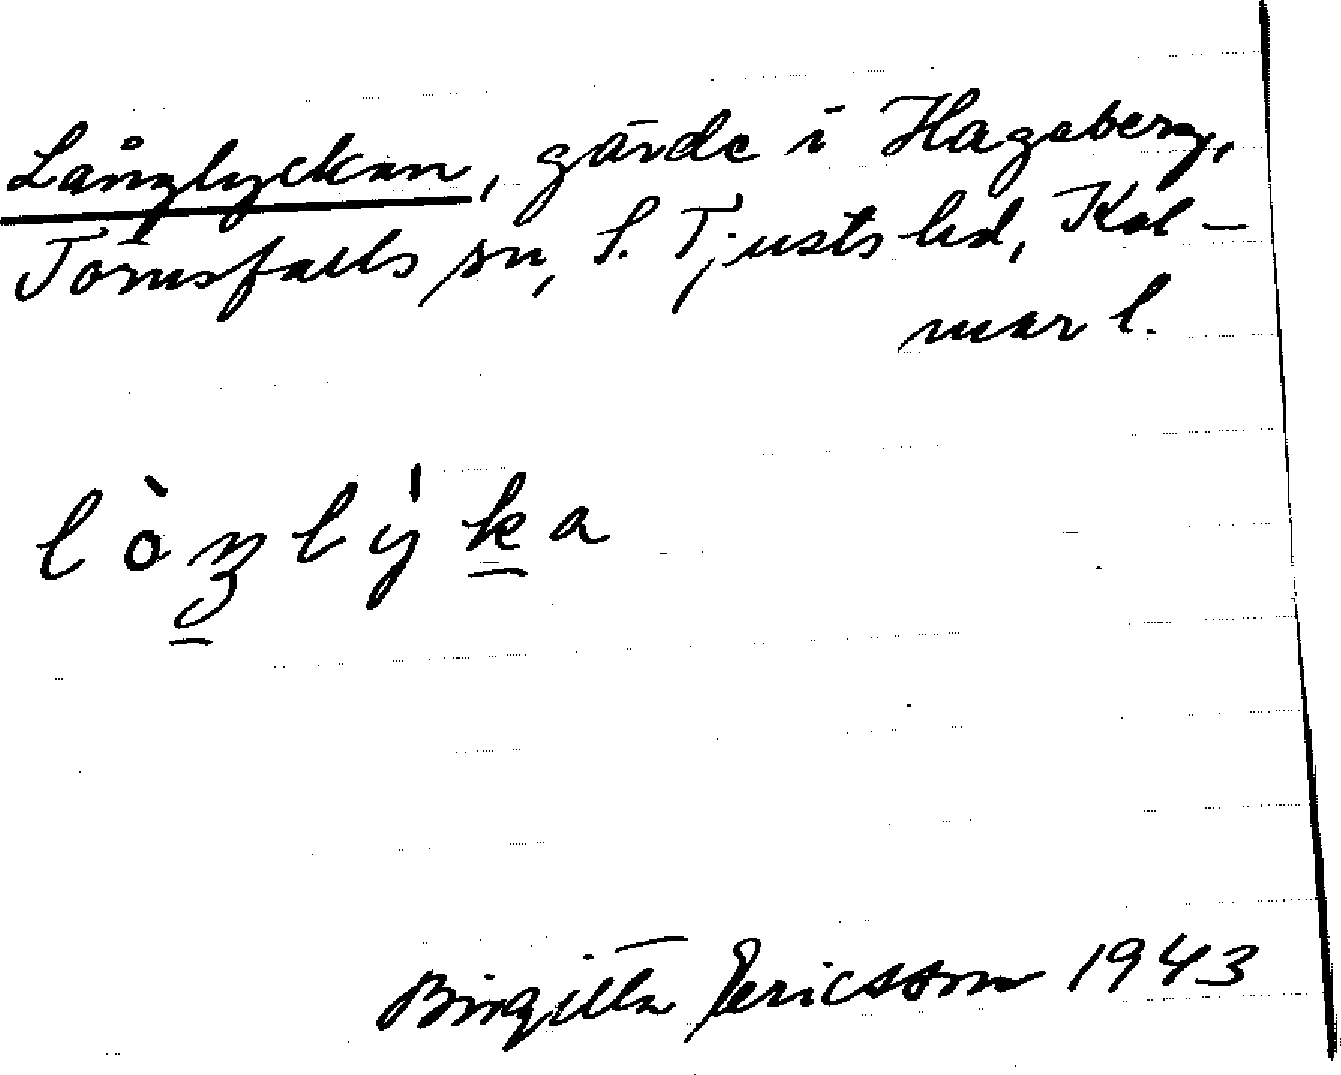 Långlyckan, gärde i Hageberg,
Törnsfalls sn, S. Tjusts hd, Kal-
mar l.
lòŋlýka
Birgitta Ericsson 1943